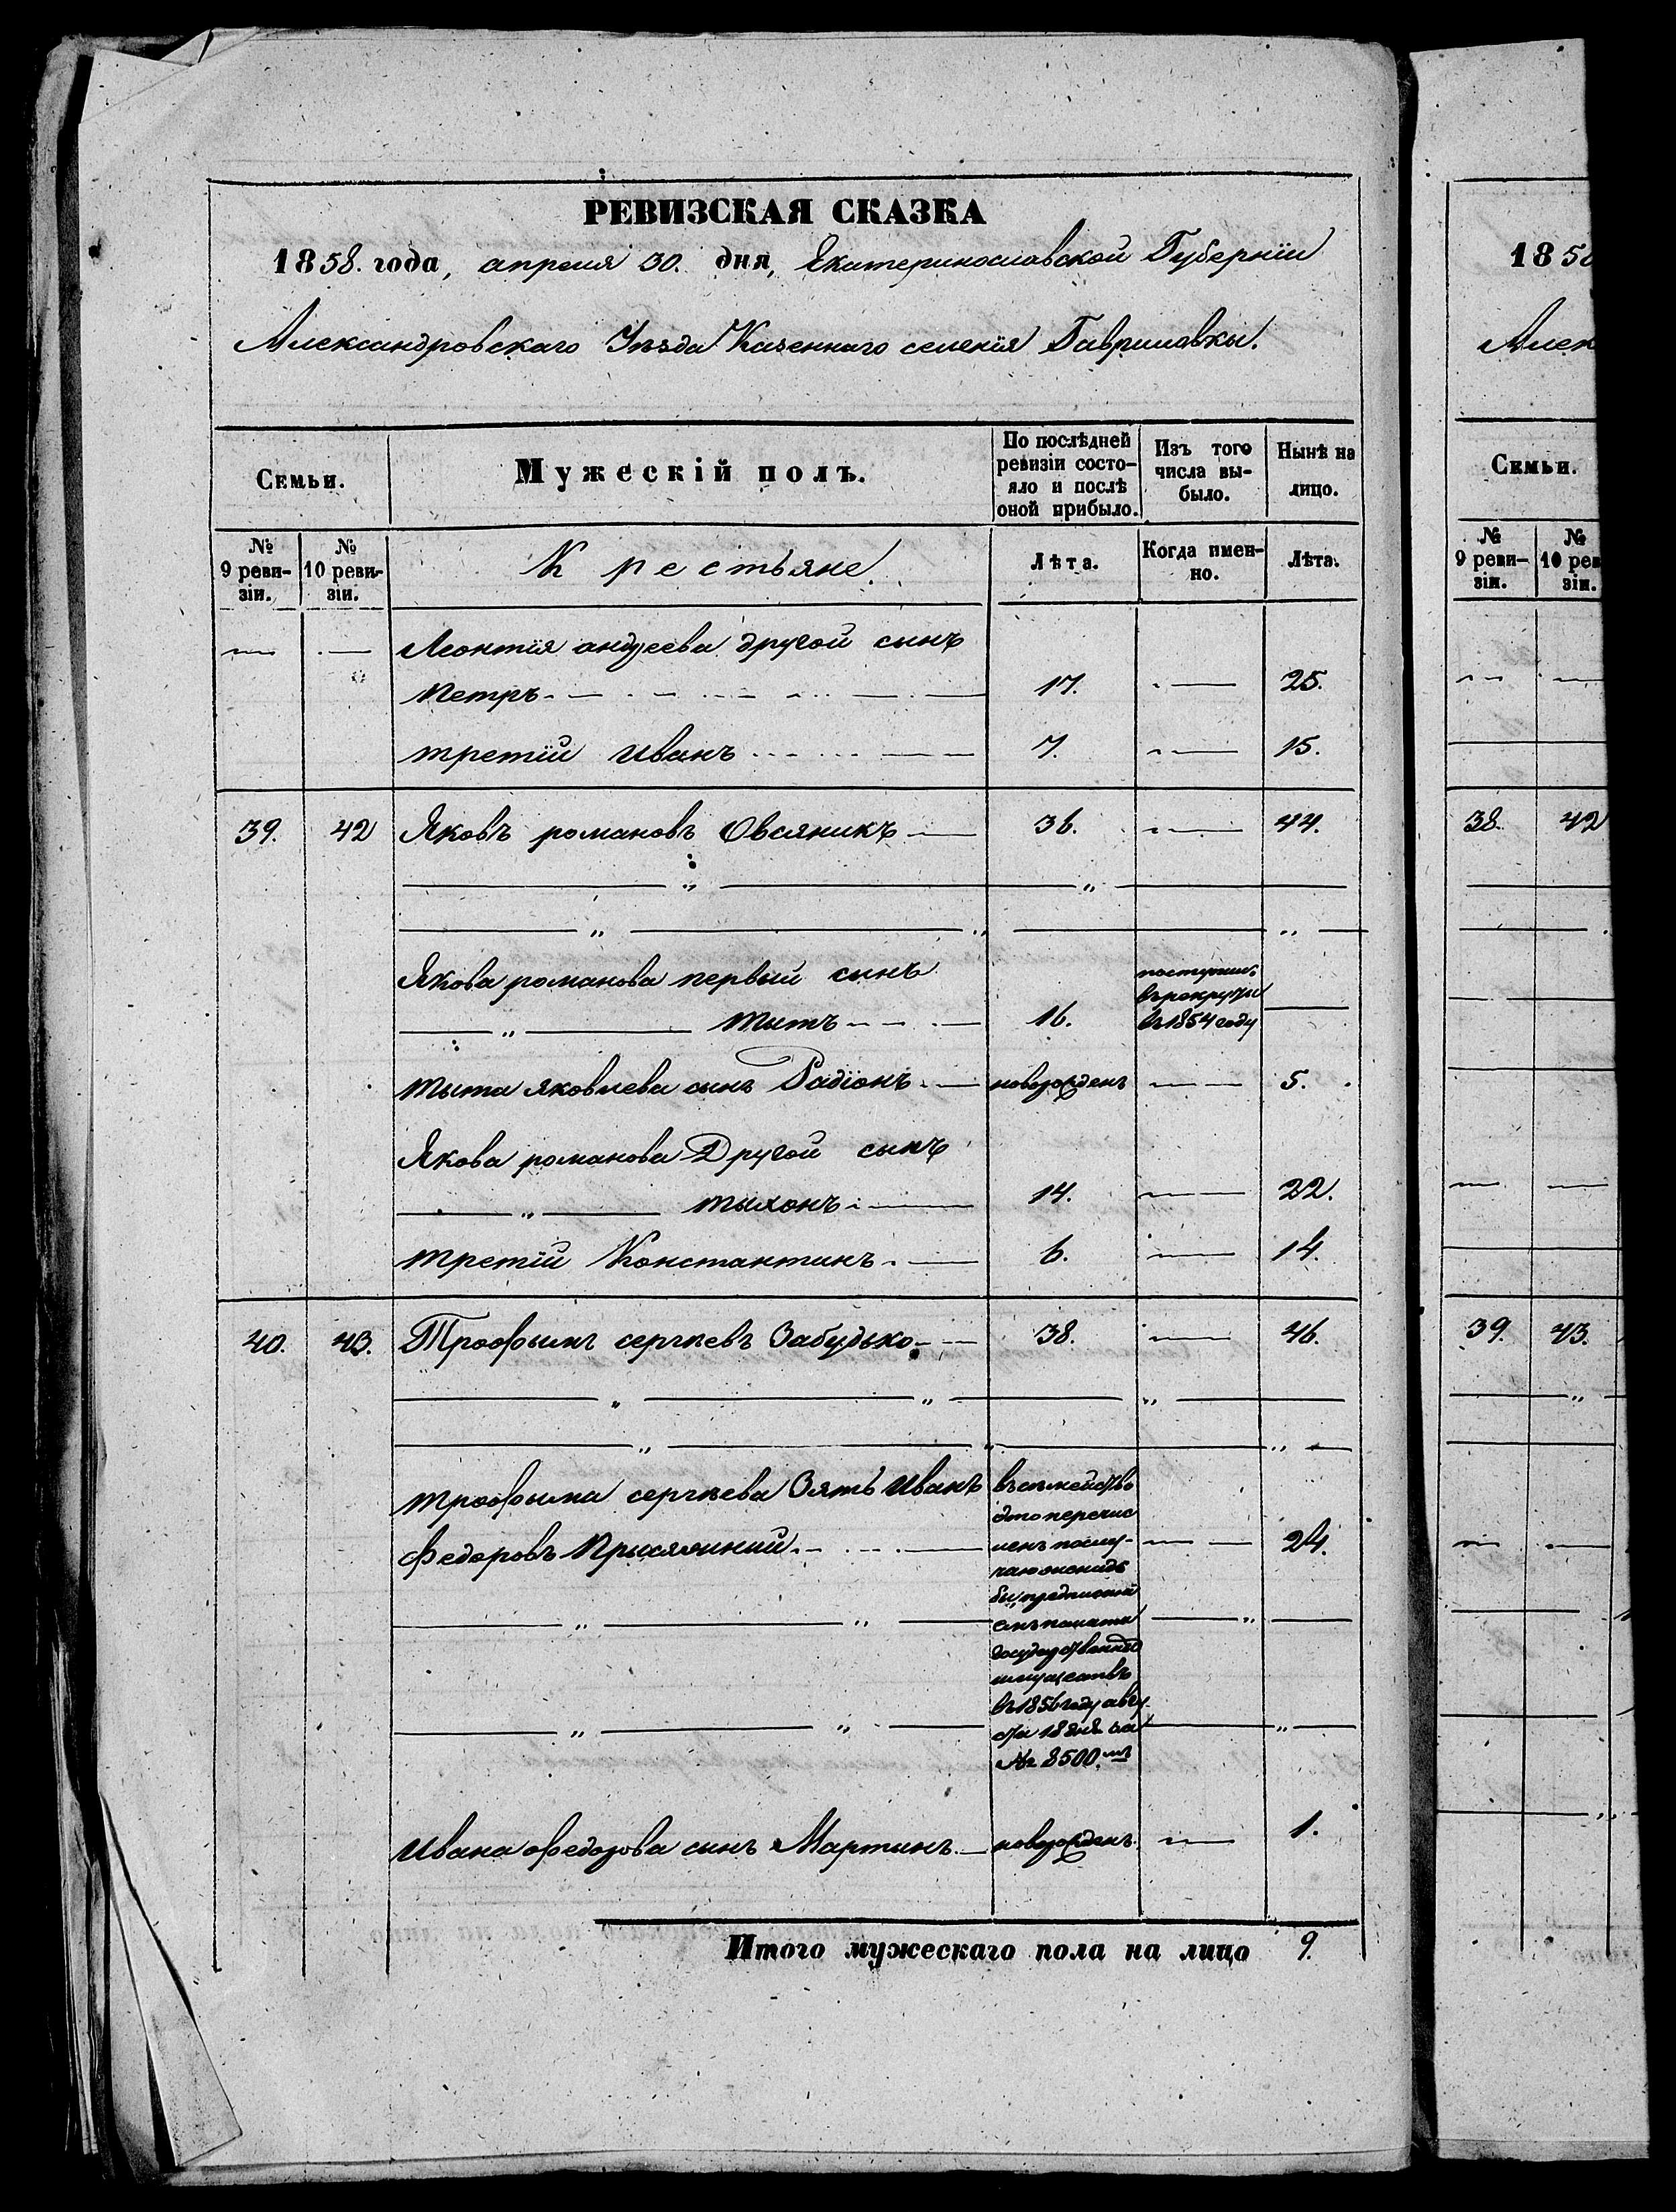 РЕВИЗСКАЯ СКАЗКА
1858. года, апреля 30. дня, Екатеринославской Губерніи
Александровскаго Уѣзда Казеннаго селенія Гавриловки.
Семьи.
Мужескій полъ.
По послѣдней ревизіи состо-
яло и послѣ оной прибыло.
Изъ того числа вы-
было.
Нынѣ на лицо.
№ 9 реви-
зіи.
№ 10 реви-
зіи.
Крестьяне.
Лѣта.
Когда имен-
но.
Лѣта.
Леонтія андреева другой сынъ
Петръ 17. 25.
третій Иванъ 7. 15.
39. 42 Яковъ романовъ Овсяникъ 36. 44.
Якова романова первый сынъ
тытъ 16. поступил. въ рекруты въ 1854 году
тыта яковлева сынъ Радіонъ новорожденъ 5.
Якова романова Другой сынъ
тыхонъ 14. 22.
третій Константинъ 6. 14.
40. 43. Трофымъ сергѣевъ Забудько 38. 46.
трофыма сергѣева Зять Иванъ
федоровъ 24.
въ семейство
перечис
ленъ по слу-
чаю
государственныхъ
имуществъ
въ 1856 году авгу
ста 18 дня за
№ 8500.мъ
Ивана федорова сынъ Мартинъ новорожденъ. 1.
Итого мужескаго пола на лицо 9.
185
Алек
Семьи.
№ 9 реви-
зіи.
№ 10 рев
зіи.
38. 42
39. 43.